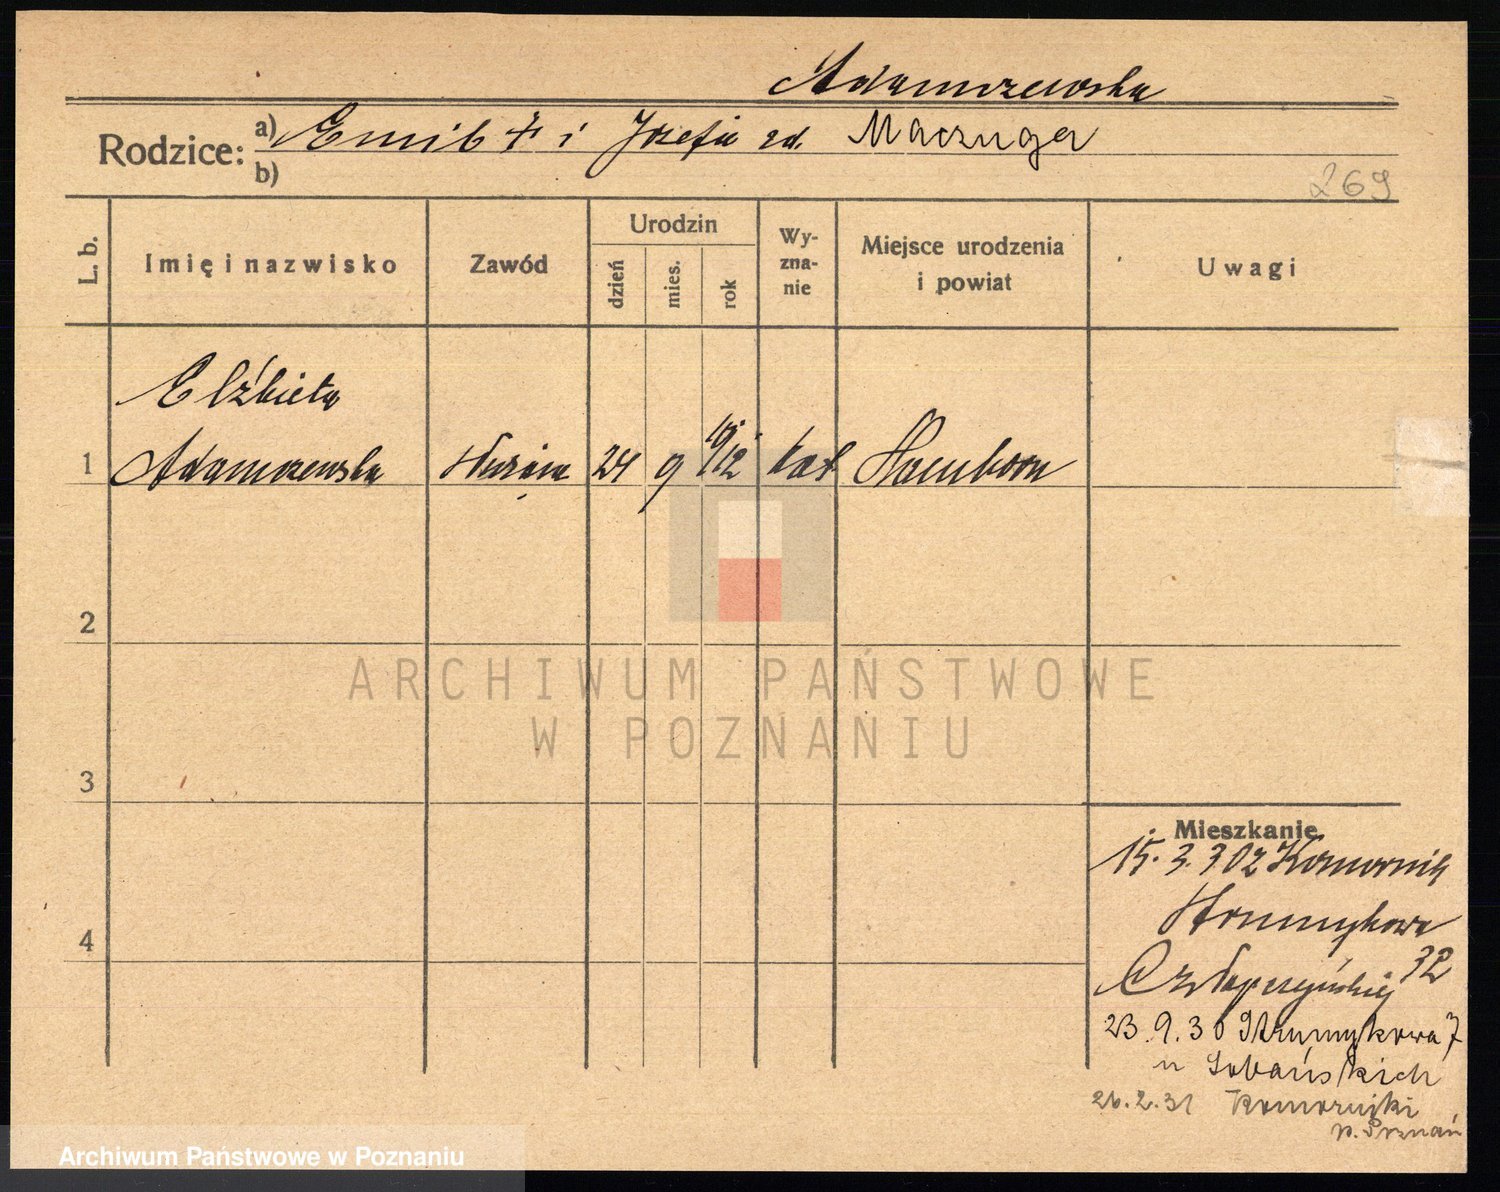 Adamczewska
Rodzice: a) Emil † i Józefa zd. Maczuga
b)
269
L. b.
Imię i nazwisko
Zawód
Urodzin
dzień
mies.
rok
Wy-
zna-
nie
Miejsce urodzenia
i powiat
Uwagi
Elżbieta
1 Adamczewska 24 9 12 kat Hamborn
2
3
4
ARCHIWUM PAŃSTWOWE
W POZNANIU
Mieszkanie
15. 3. 30 z Komornik
Strumykowa
32
23. 9. 30 Strumykowa 7
u Łobańskich
26.2.31 Komorniki
p. Poznań
Archiwum Państwowe w Poznaniu